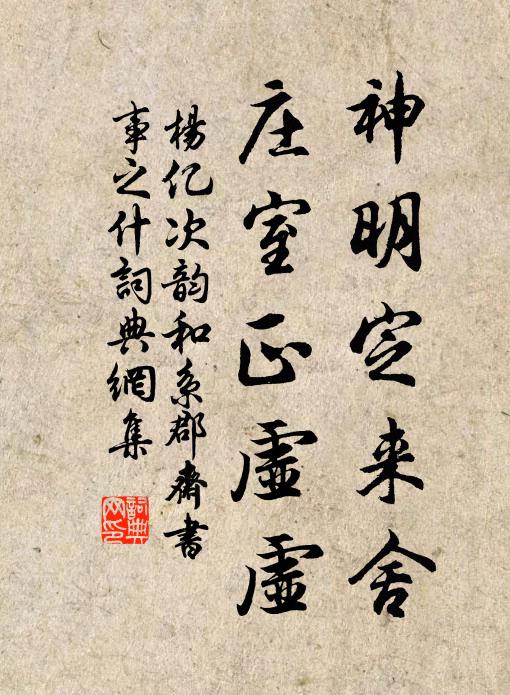 神明定来舍
庄室正虚虚
杨亿次韵和系郡斋书
事之什詞典網集
詞典网印